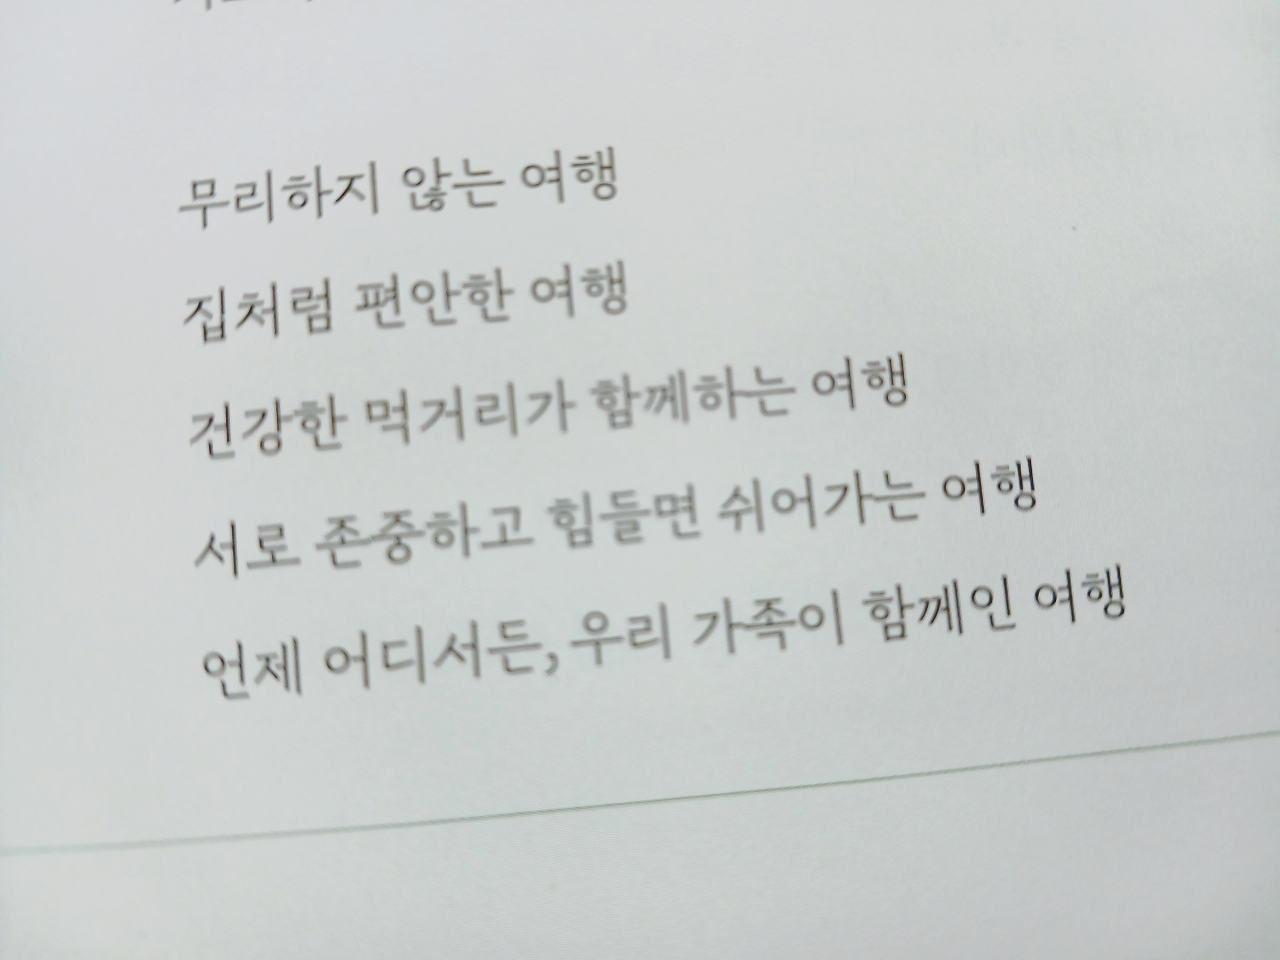 무리하지 않는 여행
집처럼 편안한 여행
건강한 먹거리가 함께하는 여행
서로 존중하고 힘들면 쉬어가는 여행
언제 어디서든, 우리 가족이 함께인 여행